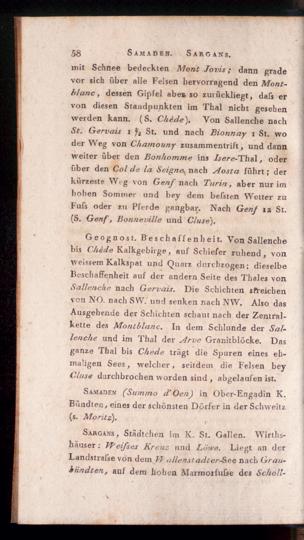 58 SAMADEN. SARGANS.
mit Schnee bedeckten Mont Jovis; dann grade
vor sich über alle Felsen hervorragend den Mont-
blanc, dessen Gipfel aber so zurückliegt, dass er
von diesen Standpunkten im Thal nicht gesehen
werden kann. (S. Chède). Von Sallenche nach
St. Gervais 1 ½ St. und nach Bionnay 1 St. wo
der Weg von Chamouny zusammentrift, und dann
weiter über den Bonhomme ins Isere-Thal, oder
über den Col de la Seigne, nach Aosta führt; der
kürzeste Weg von Genf nach Turin, aber nur im
hohen Sommer und bey dem beſsten Wetter zu
Fuſs oder zu Pferde gangbar. Nach Genf 12 St.
(S. Genf, Bonneville und Cluse).
Geognost. Beschaffenheit. Von Sallenche
bis Chède Kalkgebirge, auf Schiefer ruhend, von
weissem Kalkspat und Quarz durchzogen; dieselbe
Beschaffenheit auf der andern Seite des Thales von
Sallenche nach Gervais. Die Schichten streichen
von NO. nach SW. und senken nach NW. Also das
Ausgehende der Schichten schaut nach der Zentral-
kette des Montblanc. In dem Schlunde der Sal-
lenche und im Thal der Arve Granitblöcke. Das
ganze Thal bis Chede trägt die Spuren eines eh-
maligen Sees, welcher, seitdem die Felsen bey
Cluse durchbrochen worden sind, abgelaufen ist.
SAMADEN (Summo d'Oen) in Ober-Engadin K.
Bündten, eines der schönsten Dörfer in der Schweitz
(s. Moritz).
SARGANS, Städtchen im K. St. Gallen. Wirths-
häuser: Weiſses Kreuz und Löwe. Liegt an der
Landstraſse von dem Wallenstadter-See nach Grau-
bündten, auf dem hohen Marmorfuſse des Scholl-